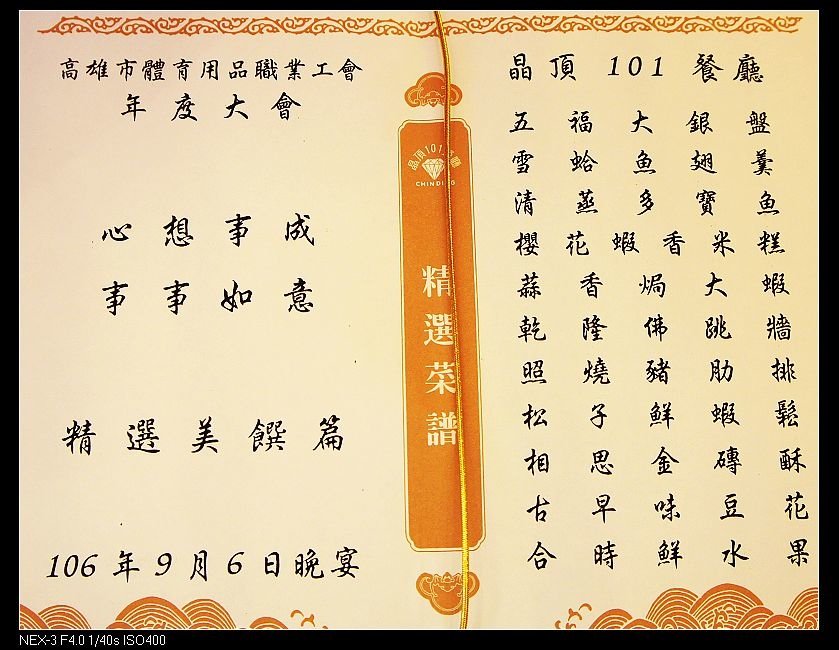 高雄市體育用品職業工會
年度大會
心想事成
事事如意
精選美饌篇
106年9月6日晚宴
晶頂101
CHINDING
精選菜譜
晶頂 101 餐廳
五福大銀盤
雪蛤魚翅羹
清蒸多寶魚
櫻花蝦香米糕
蒜香焗大蝦
乾隆佛跳牆
照燒豬肋排
松子鮮蝦鬆
相思金磚酥
古早味豆花
合時鮮水果
NEX-3 F4.0 1/40s ISO400